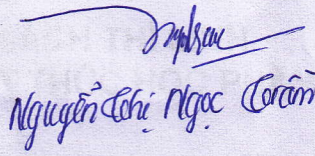 Nguyễn Thị Ngọc Trâm